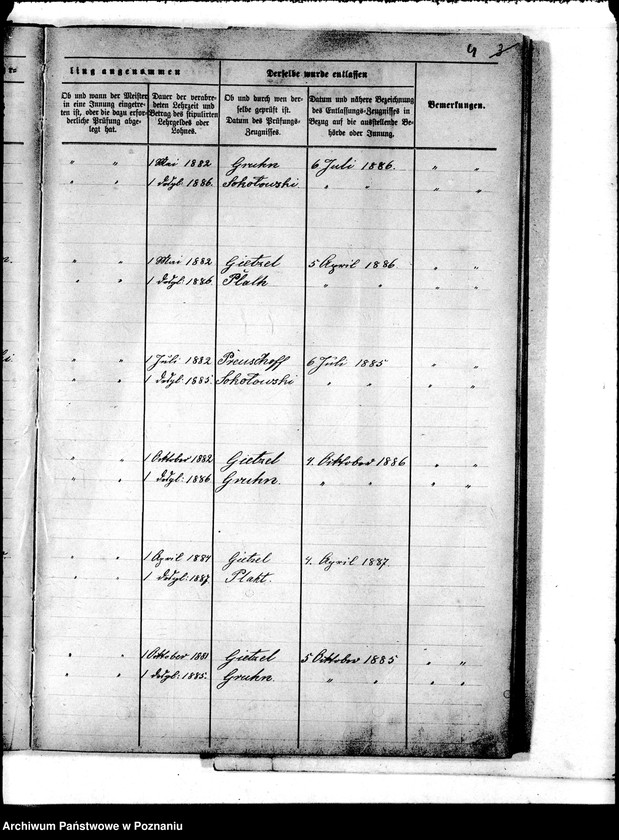 4 3
ling angenommen
Derselbe wurde entlassen
Ob und wann der Meister
in eine Innung eingetre-
ten ist, oder die dazu erfor-
derliche Prüfung abge-
legt hat.
Dauer der verabre-
deten Lehrzeit und
Betrag des stipulirten
Lehrgeldes oder
Lohnes.
Ob und durch wen der-
selbe geprüft ist.
Datum des Prüfungs-
Zeugnisses.
Datum und nähere Bezeichnung
des Entlassungs-Zeugnisses in
Bezug auf die ausstellende Be-
hörde oder Innung.
Bemerkungen.
" " 1 Mai 1882 Gruhn 6 Juli 1886. " "
" " 1 dsgl: 1886. Sokołowski " " " "
" " 1 Mai 1882 Gietzel 5 April 1886 " "
" " 1 dsgl: 1886 Plath " " " "
" " 1 Juli 1882 Preuschoff 6 Juli 1885 " "
" " 1 dsgl: 1885. Sokołowski " " " "
" " 1 Oktober 1882 Gietzel 4. Oktober 1886 " "
" " 1 dsgl: 1886 Gruhn. " " " "
" " 1 April 1884 Gietzel 4. April 1887.
" " 1 dsgl: 1887. Plaht.
" " 1 Oktober 1881 Gietzel 5 Oktober 1885 " "
" " 1 dsgl: 1885. Gruhn. " " " "
Archiwum Państwowe w Poznaniu